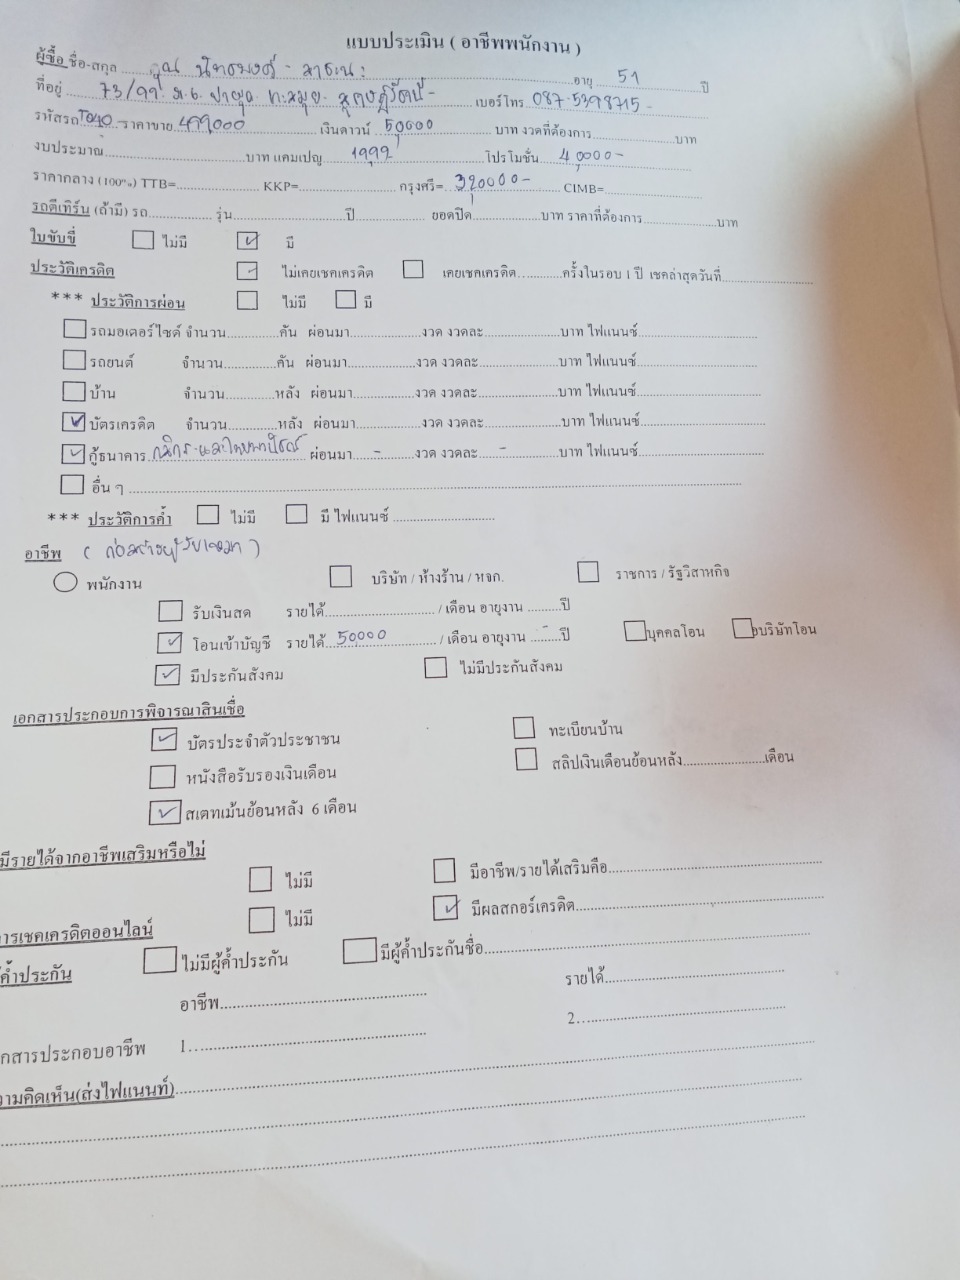 แบบประเมิน ( อาชีพพนักงาน )
ผู้ซื้อ ชื่อ-สกุล คุณ อายุ 51 ปี
ที่อยู่ 73/99 ม.6 เบอร์โทร 087-5398715
รหัสรถ T040 ราคาขาย 499000 เงินดาวน์ 50,000 บาท งวดที่ต้องการ บาท
งบประมาณ บาท แคมเปญ 1,999 โปรโมชั่น 40,000-
ราคากลาง (100%) TTB= KKP= กรุงศรี= 320000- CIMB=
รถตีเทิร์น (ถ้ามี) รถ รุ่น ปี ยอดปิด บาท ราคาที่ต้องการ บาท
ใบขับขี่ ไม่มี ✓ มี
ประวัติเครดิต ✓ ไม่เคยเชคเครดิต เคยเชคเครดิต ครั้งในรอบ 1 ปี เชคล่าสุดวันที่
*** ประวัติการผ่อน ไม่มี มี
รถมอเตอร์ไซด์ จำนวน คัน ผ่อนมา งวด งวดละ บาท ไฟแนนซ์
รถยนต์ จำนวน คัน ผ่อนมา งวด งวดละ บาท ไฟแนนซ์
บ้าน จำนวน หลัง ผ่อนมา งวด งวดละ บาท ไฟแนนซ์
✓ บัตรเครดิต จำนวน หลัง ผ่อนมา งวด งวดละ บาท ไฟแนนซ์
✓ กู้ธนาคาร กสิกร และไทยพาณิชย์ ผ่อนมา - งวด งวดละ - บาท ไฟแนนซ์
อื่น ๆ
*** ประวัติการค้ำ ไม่มี มี ไฟแนนซ์
อาชีพ ( ก่อสร้างผู้รับเหมา )
พนักงาน บริษัท / ห้างร้าน / หจก. ราชการ / รัฐวิสาหกิจ
รับเงินสด รายได้ / เดือน อายุงาน ปี
✓ โอนเข้าบัญชี รายได้ 50000 / เดือน อายุงาน - ปี บุคคลโอน บริษัทโอน
✓ มีประกันสังคม ไม่มีประกันสังคม
เอกสารประกอบการพิจารณาสินเชื่อ
✓ บัตรประจำตัวประชาชน ทะเบียนบ้าน
หนังสือรับรองเงินเดือน สลิปเงินเดือนย้อนหลัง เดือน
✓ สเตทเม้นย้อนหลัง 6 เดือน
มีรายได้จากอาชีพเสริมหรือไม่
ไม่มี มีอาชีพ/รายได้เสริมคือ
การเชคเครดิตออนไลน์ ไม่มี ✓ มีผลสกอร์เครดิต
ค้ำประกัน ไม่มีผู้ค้ำประกัน มีผู้ค้ำประกันชื่อ
อาชีพ รายได้
กสารประกอบอาชีพ 1 2
วามคิดเห็น(ส่งไฟแนนท์)